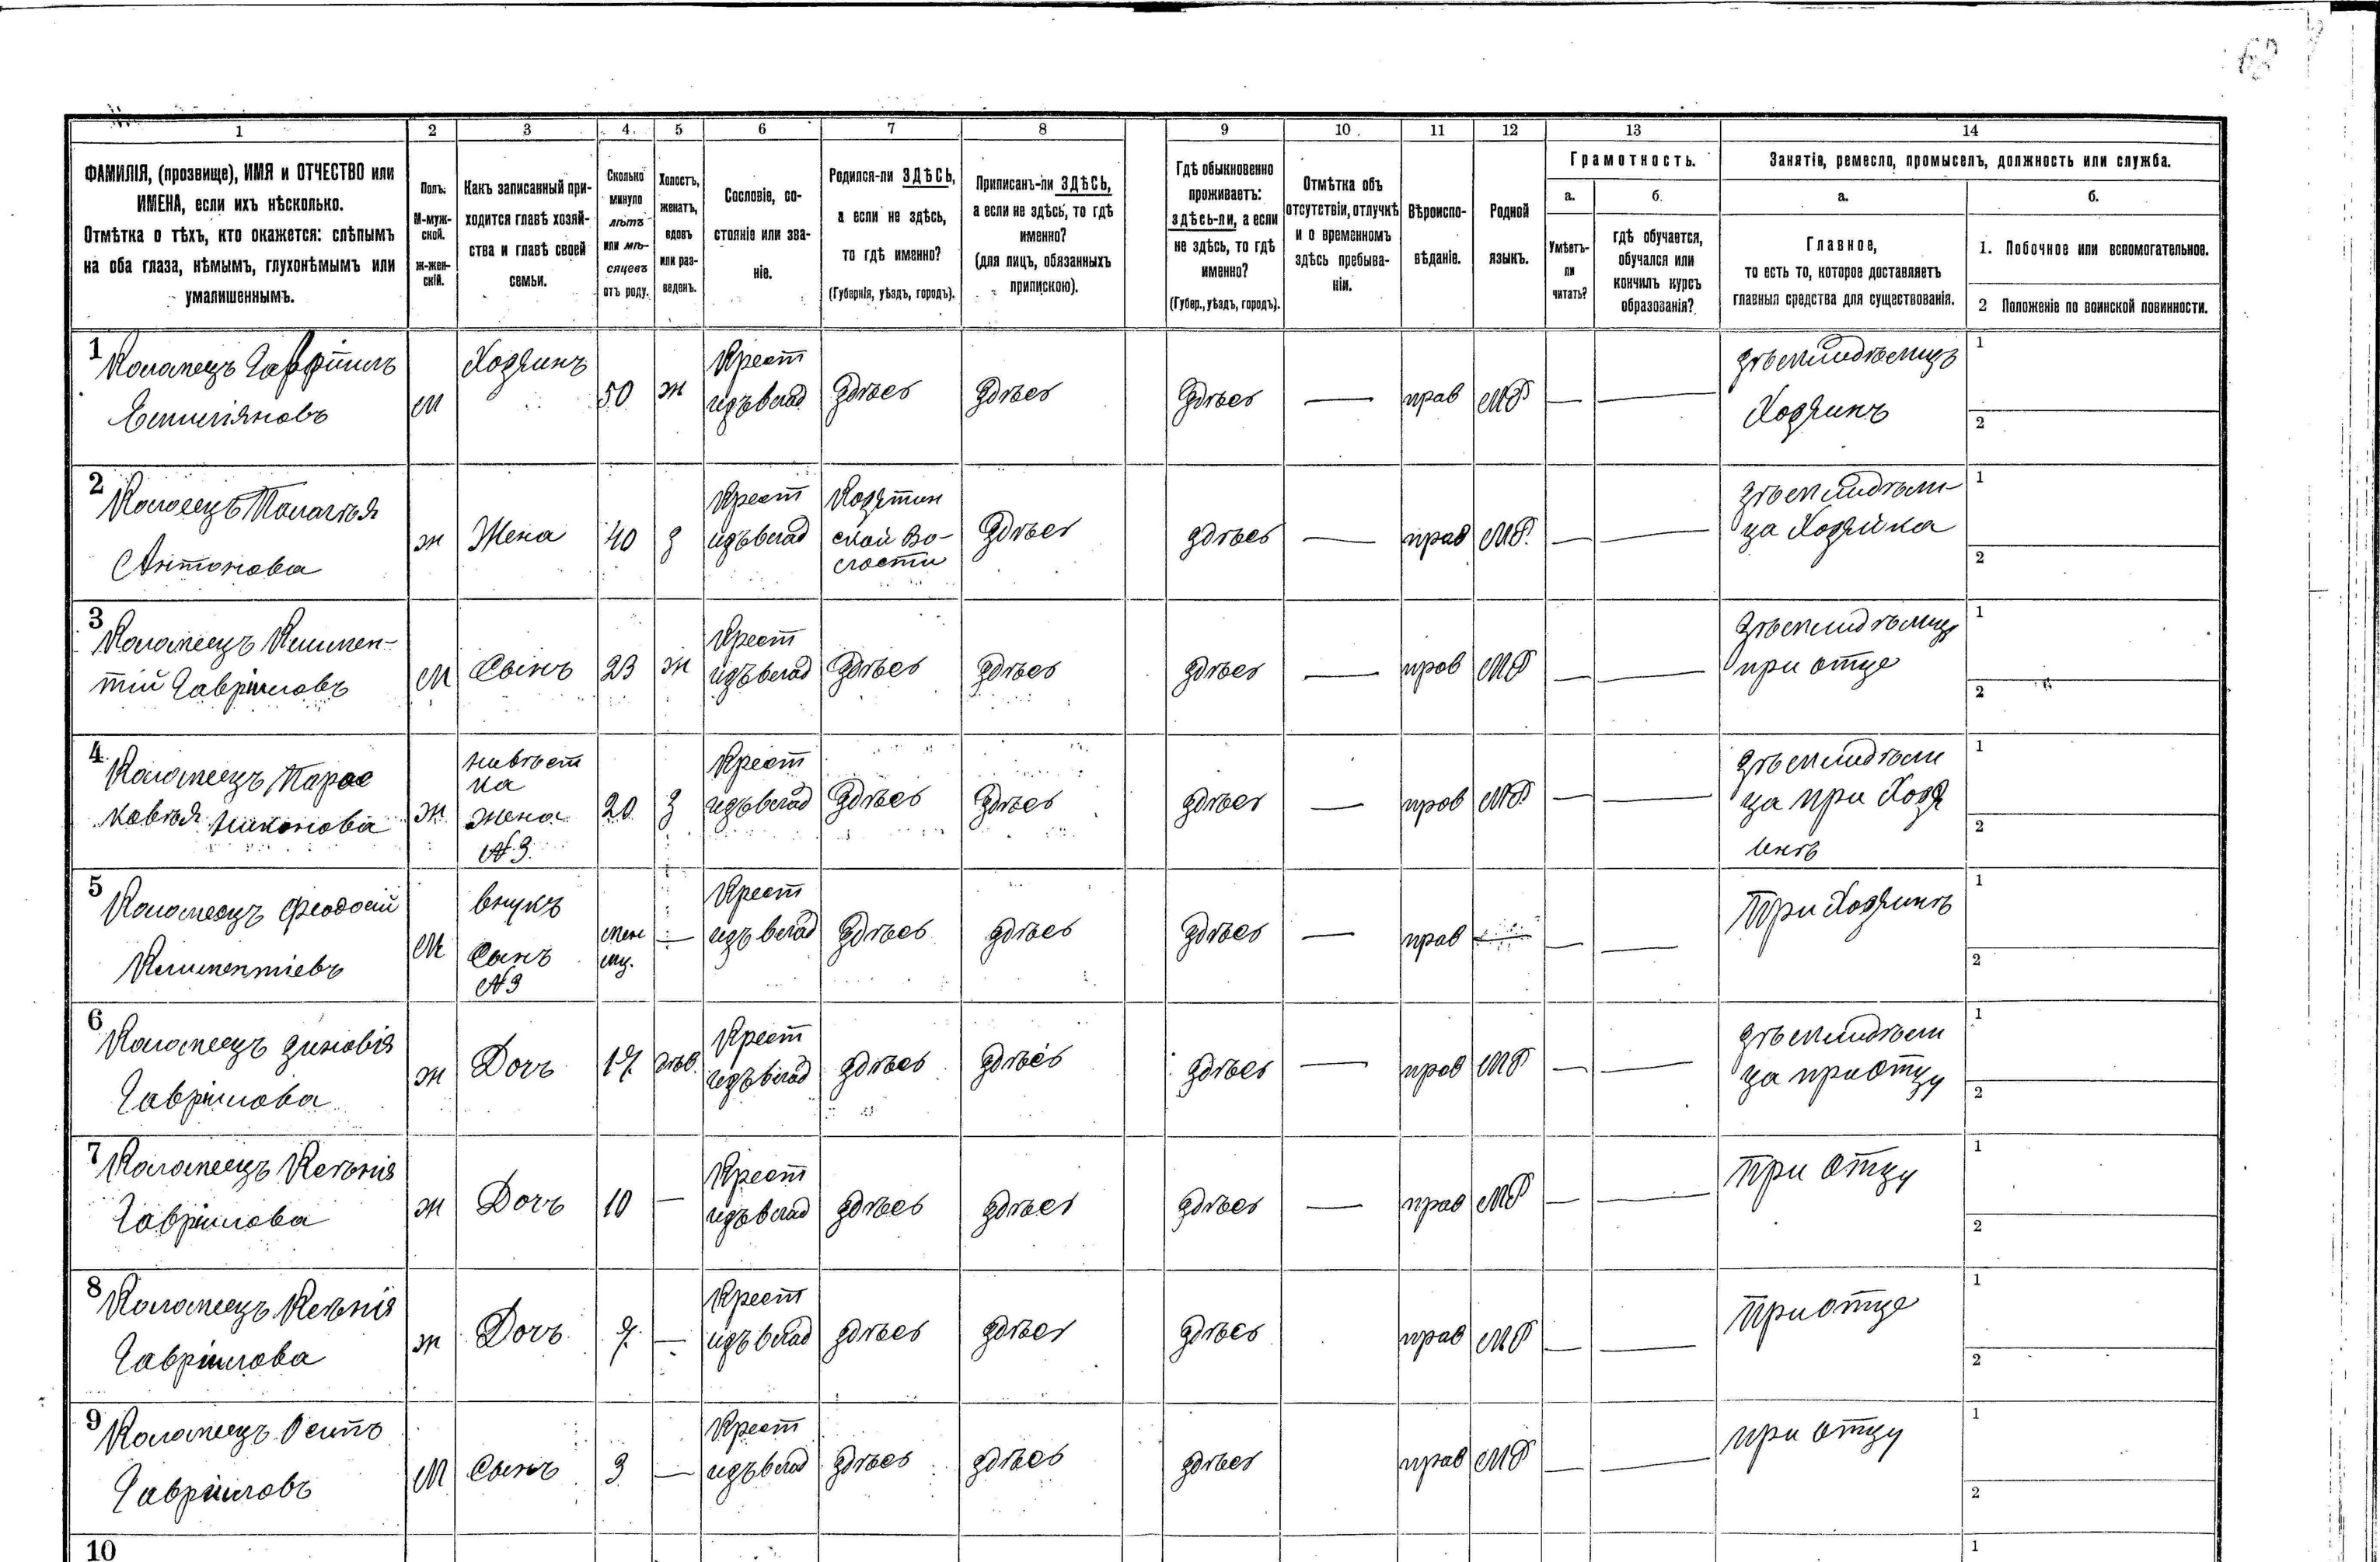 68
1 2 3 4. 5 6 7 8 9 10. 11 12 13 14
ФАМИЛІЯ, (прозвище), ИМЯ и ОТЧЕСТВО или
ИМЕНА, если ихъ нѣсколько.
Отмѣтка о тѣхъ, кто окажется: слѣпымъ
на оба глаза, нѣмымъ, глухонѣмымъ или
умалишеннымъ.
Полъ.
М-муж-
ской.
Ж-жен-
скій.
Какъ записанный при-
ходится главѣ хозяй-
ства и главѣ своей
семьи.
Сколько
минуло
лѣтъ
или мѣ-
сяцевъ
отъ роду.
Холостъ,
женатъ,
вдовъ
или раз-
веденъ.
Сословіе, со-
стояніе или зва-
ніе.
Родился-ли ЗДѢСЬ,
а если не здѣсь,
то гдѣ именно?
(Губернія, уѣздъ, городъ).
Приписанъ-ли ЗДѢСЬ,
а если не здѣсь, то гдѣ
именно?
(для лицъ, обязанныхъ
припискою).
Гдѣ обыкновенно
проживаетъ:
здѣсь-ли, а если
не здѣсь, то гдѣ
именно?
(Губер., уѣздъ, городъ).
Отмѣтка объ
отсутствіи, отлучкѣ
и о временномъ
здѣсь пребыва-
ніи.
Вѣроиспо-
вѣданіе.
Родной
языкъ.
Грамотность.
а.
Умѣетъ-
ли
читать?
б.
гдѣ обучается,
обучался или
кончилъ курсъ
образованія?
Занятіе, ремесло, промыселъ, должность или служба.
а.
Главное,
то есть то, которое доставляетъ
главныя средства для существованія.
б.
1. Побочное или вспомогательное.
2 Положеніе по воинской повинности.
1
Коломеецъ Гавріилъ
Емиліяновъ
м
Хозяинъ
50
ж
Крест
изъ влад
здѣсь
здѣсь
здѣсь
—
прав
МР
—
—
зѣмлидѣлицъ
Хозяинъ
1
2
2
Коломеецъ Палагѣя
Антонова
ж
Жена
40
з
Крест
изъ влад
Козятин
ской Во-
лости
здѣсь
здѣсь
—
прав
МР.
—
—
зѣмлидѣли-
ца Хозяйка
1
2
3
Коломеецъ Климен-
тій Гавріиловъ
м
Сынъ
23
ж
Крест
изъ влад
здѣсь
здѣсь
здѣсь
—
прав
МР
—
—
зѣмлидѣлицъ
при отце
1
2
4.
Коломеецъ Парас
ковѣя Никонова
ж
нивѣст
ка
жена
№ 3.
20
з
Крест
изъ влад
здѣсь
здѣсь
здѣсь
—
прав
МР.
—
—
зѣмлидѣли
ца при Хозя
инѣ
1
2
5
Коломеецъ Феодосій
Климентіевъ
м
внукъ
Сынъ
№3
Крест
изъ влад
здѣсь
здѣсь
здѣсь
—
прав
—
—
—
При Хозяинѣ
1
2
6
Коломеецъ Зиновія
Гавріилова
ж
Дочь
17
дѣв.
Крест
изъ влад
здѣсь
здѣсь
здѣсь
—
прав
МР
—
—
зѣмлидѣли
ца при отцу
1
2
7
Коломеецъ Ксѣнія
Гавріилова
ж
Дочь
10
—
Крест
изъ влад
здѣсь
здѣсь
здѣсь
—
прав
МР
—
—
при отцу
1
2
8
Коломеецъ Ксѣнія
Гавріилова
ж
Дочь
7.
—
Крест
изъ влад
здѣсь
здѣсь
здѣсь
прав
МР
—
—
При отце
1
2
9
Коломеецъ Осипъ
Гавріиловъ
м
Сынъ
3
—
Крест
изъ влад
здѣсь
здѣсь
здѣсь
прав
МР
—
—
при отцу
1
2
10
1